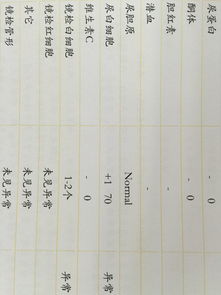 尿蛋白 - 0
酮体 - 0
胆红素 -
潜血 -
尿胆原 Normal
尿白细胞 +1 70 异常
维生素C - 0
镜检白细胞 1-2个 异常
镜检红细胞 未见异常
其它 未见异常
镜检管形 未见异常